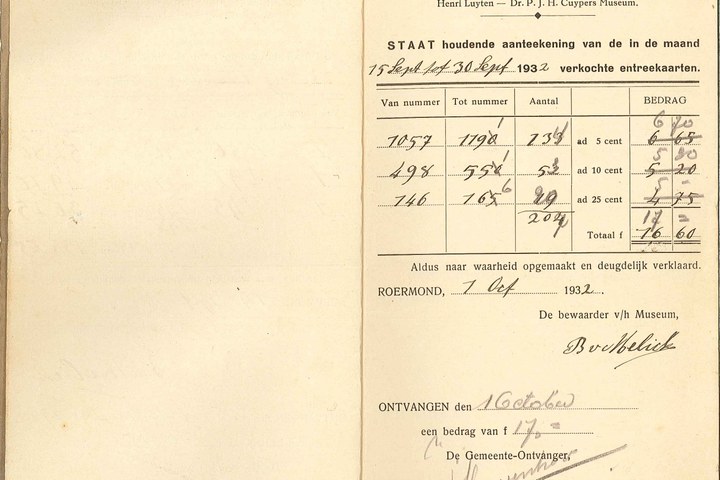 Henri Luyten — Dr. P. J. H. Cuypers Museum.
STAAT houdende aanteekening van de in de maand
15 Sept tot 30 Sept 1932 verkochte entreekaarten.
Van nummer Tot nummer Aantal BEDRAG
6 70
1057 1190 1 133 4 ad 5 cent 6 65
5 30
498 550 1 53 ad 10 cent 5 20
5 =
146 165 6 19 ad 25 cent 4 75
204 17 =
Totaal f 16 60
Aldus naar waarheid opgemaakt en deugdelijk verklaard.
ROERMOND, 1 Oct 1932.
De bewaarder v/h Museum,
ONTVANGEN den 1 October
een bedrag van f 17,=
De Gemeente-Ontvanger,